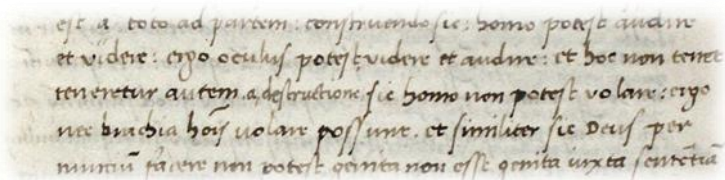 est a toto ad partem: construendo sic: homo potest audire
et videre: ergo oculus potest videre et audire: et hoc non tenet
teneretur autem a destructione sic homo non potest volare: ergo
nec brachia hoīs volare possunt. et similiter sic Deus per
nunciū facere non potest genita non esse genita iuxta sentētiā